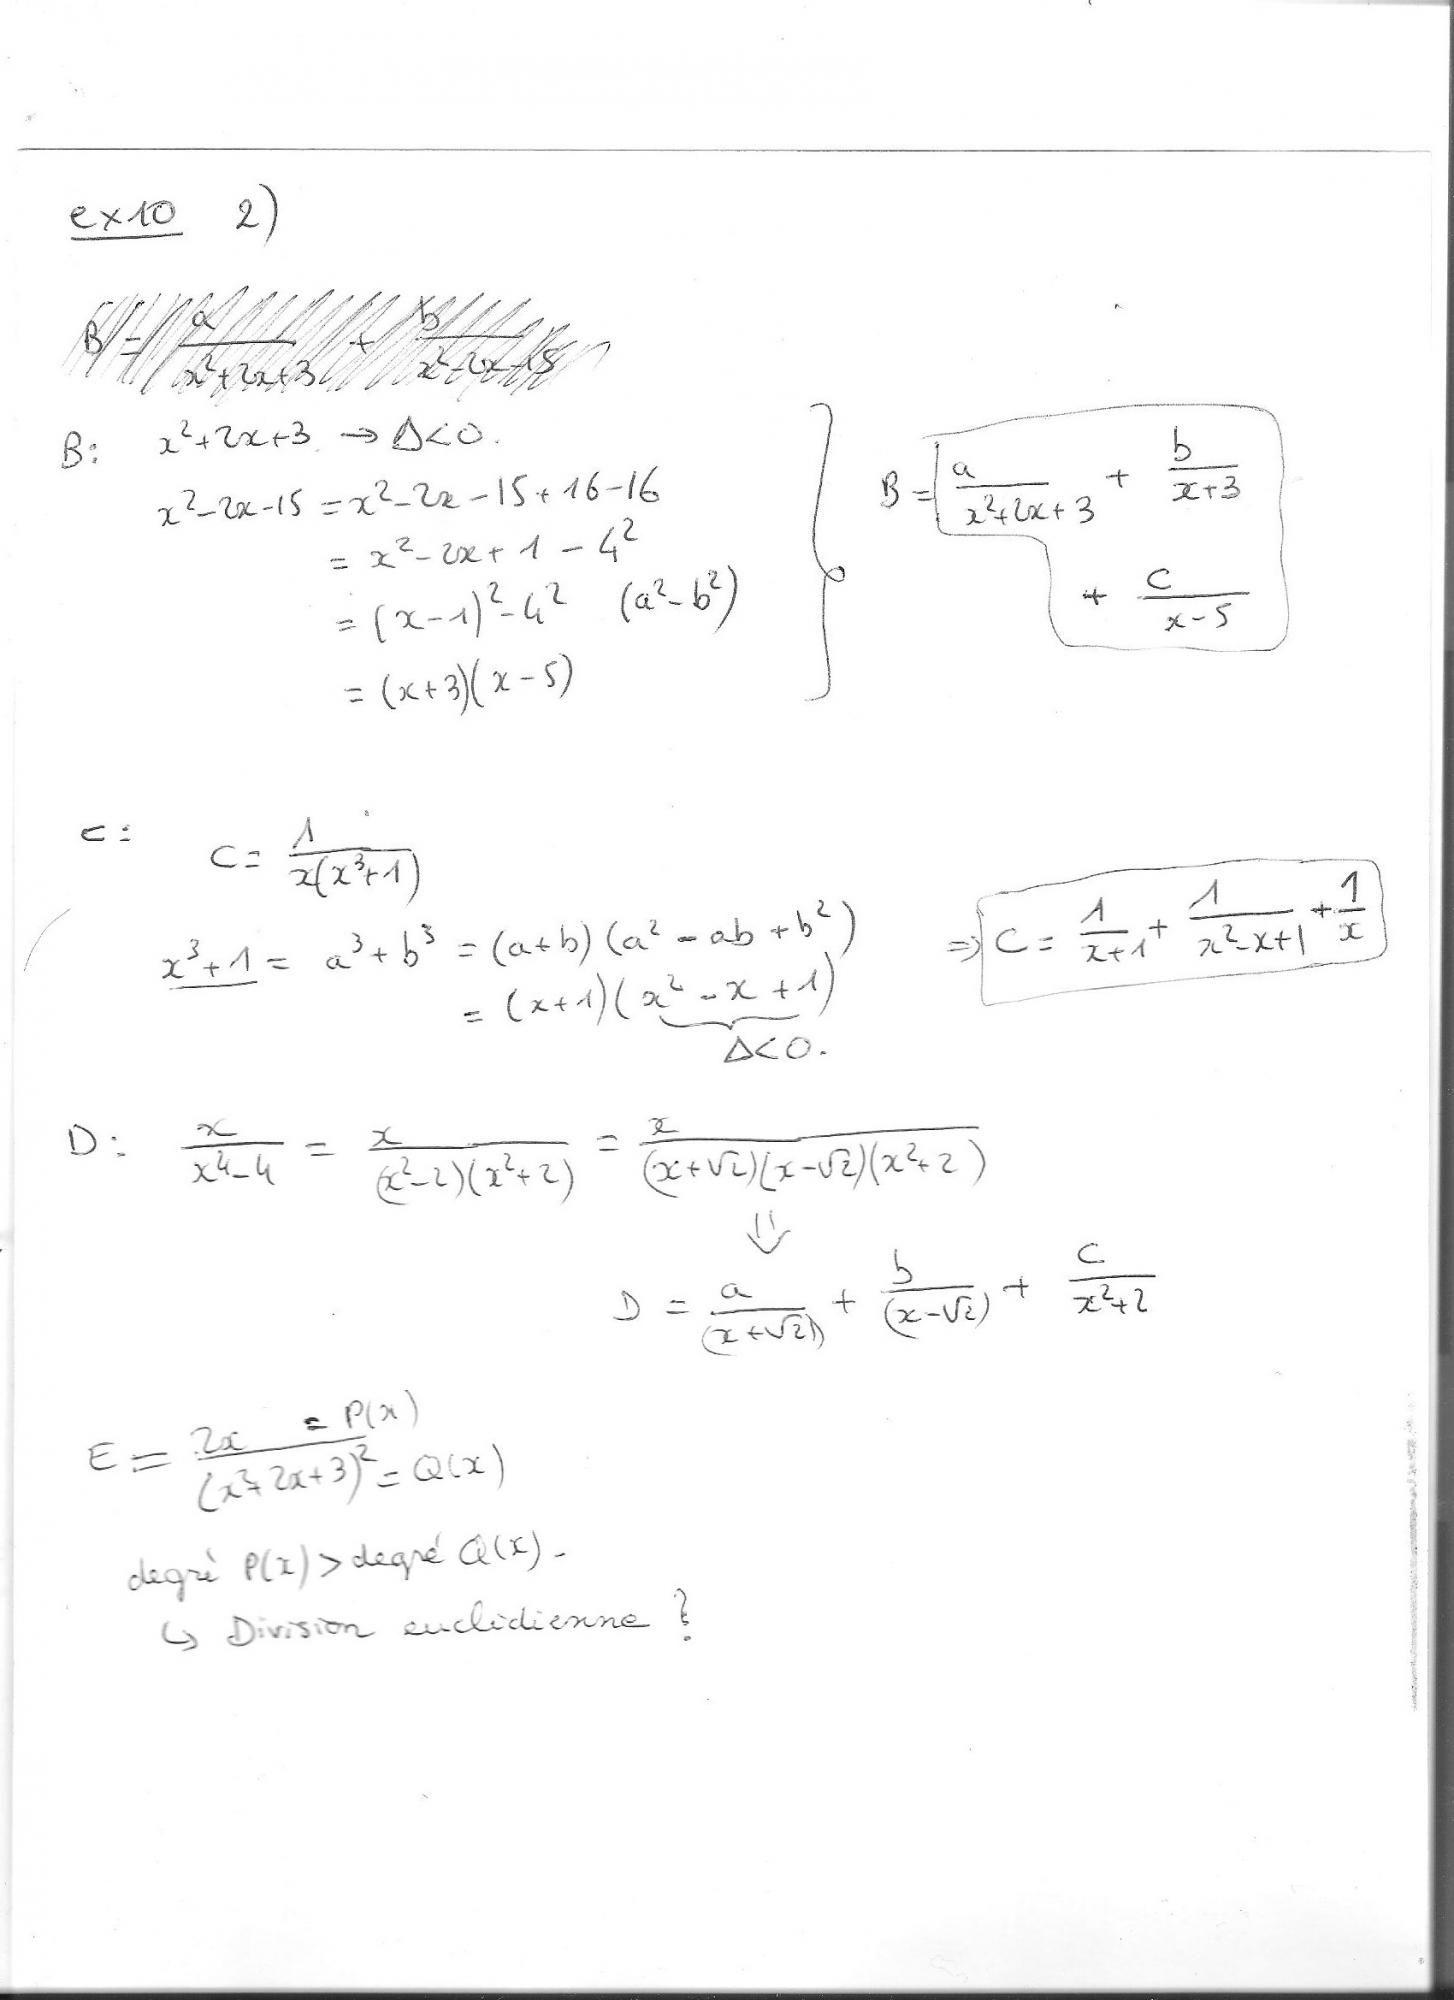 ex10 2)
B = a/(x²+2x+3) + b/(x²-2x-15)
B: x²+2x+3 → Δ<0.
x²-2x-15 = x²-2x-15+16-16
= x²-2x+1-4²
= (x-1)²-4² (a²-b²)
= (x+3)(x-5)
B = a/(x²+2x+3) + b/(x+3)
+ c/(x-5)
C: C = 1/(x(x³+1))
x³+1 = a³+b³ = (a+b)(a²-ab+b²)
= (x+1)(x²-x+1)
Δ<0.
⇒ C = 1/(x+1) + 1/(x²-x+1) + 1/x
D: x/(x⁴-4) = x/((x²-2)(x²+2)) = x/((x+√2)(x-√2)(x²+2))
⇓
D = a/(x+√2) + b/(x-√2) + c/(x²+2)
E = 2x/(x²+2x+3)² = P(x) = Q(x)
degré P(x) > degré Q(x).
↳ Division euclidienne ?